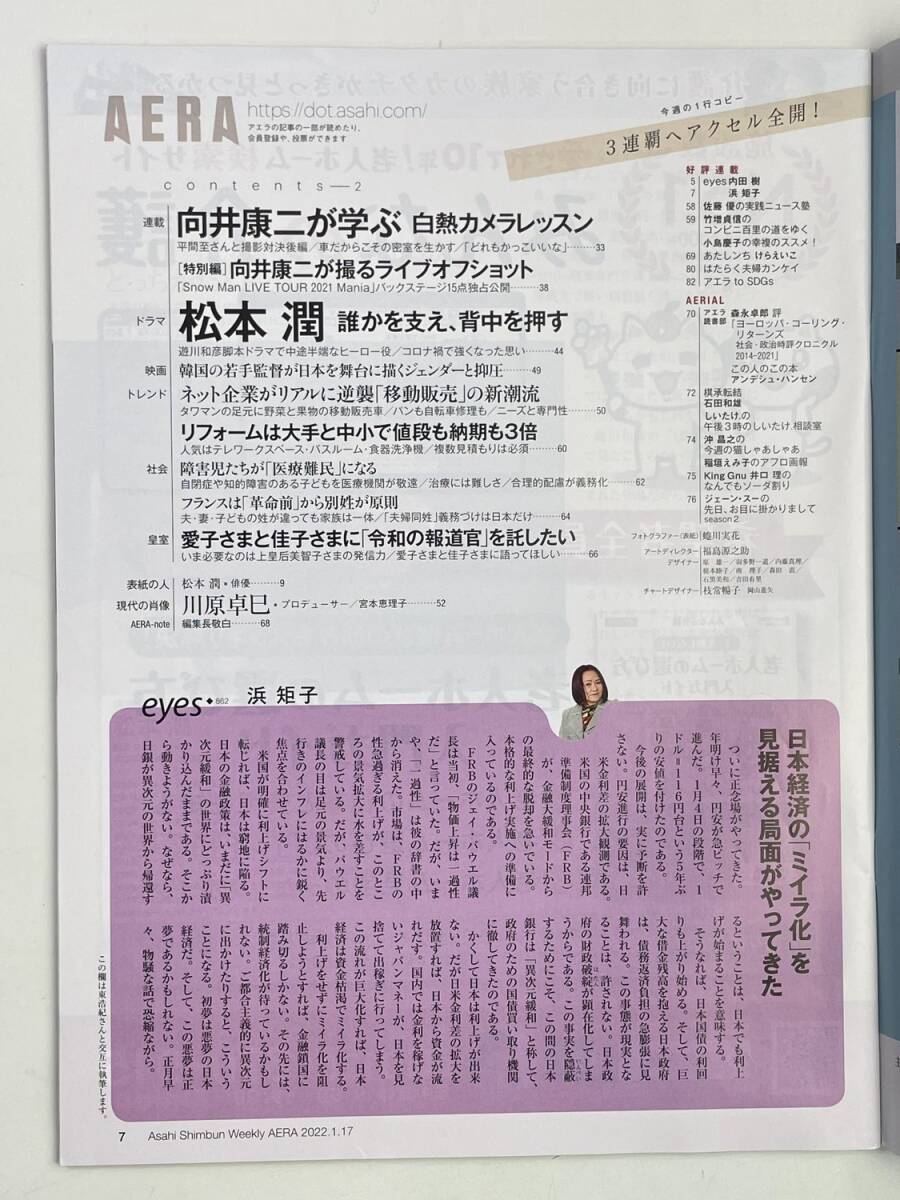 AERA
https://dot.asahi.com/
アエラの記事の一部が読めたり、
会員登録や、投票ができます
今週の1行コピー
3連覇へアクセル全開！
contents—2
連載
向井康二が学ぶ 白熱カメラレッスン
平間至さんと撮影対決後編／車だからこその密室を生かす／「どれもかっこいいな」………33
［特別編］向井康二が撮るライブオフショット
「Snow Man LIVE TOUR 2021 Mania」バックステージ15点独占公開………38
ドラマ
松本 潤 誰かを支え、背中を押す
遊川和彦脚本ドラマで中途半端なヒーロー役／コロナ禍で強くなった思い………44
映画
韓国の若手監督が日本を舞台に描くジェンダーと抑圧………49
トレンド
ネット企業がリアルに逆襲「移動販売」の新潮流
タワマンの足元に野菜と果物の移動販売車／パンも自転車修理も／ニーズと専門性………50
リフォームは大手と中小で値段も納期も3倍
人気はテレワークスペース・バスルーム・食器洗浄機／複数見積もりは必須………60
社会
障害児たちが「医療難民」になる
自閉症や知的障害のある子どもを医療機関が敬遠／治療には難しさ／合理的配慮が義務化………62
フランスは「革命前」から別姓が原則
夫・妻・子どもの姓が違っても家族は一体／「夫婦同姓」義務づけは日本だけ………64
皇室
愛子さまと佳子さまに「令和の報道官」を託したい
いま必要なのは上皇后美智子さまの発信力／愛子さまと佳子さまに語ってほしい………66
表紙の人
松本 潤・俳優………9
現代の肖像
川原卓巳・プロデューサー／宮本恵理子………52
AERA-note
編集長敬白………68
好評連載
5 eyes 内田 樹
7 浜 矩子
58 佐藤 優の実践ニュース塾
59 竹増貞信の
コンビニ百里の道をゆく
小島慶子の幸複のススメ！
69 あたしンち けらえいこ
80 はたらく夫婦カンケイ
82 アエラ to SDGs
AERIAL
70 アエラ読書部 森永卓郎 評
「ヨーロッパ・コーリング・
リターンズ
社会・政治時評クロニクル
2014-2021」
この人のこの本
アンデシュ・ハンセン
72 棋承転結
石田和雄
しいたけ.の
午後3時のしいたけ.相談室
74 沖 昌之の
今週の猫しゃあしゃあ
稲垣えみ子のアフロ画報
75 King Gnu 井口 理の
なんでもソーダ割り
76 ジェーン・スーの
先日、お目に掛かりまして
season2
フォトグラファー（表紙） 蜷川実花
アートディレクター 福島源之助
チャートデザイナー 枝常暢子 岡山進矢
eyes◆862 浜 矩子
日本経済の「ミイラ化」を
見据える局面がやってきた
ついに正念場がやってきた。
年明け早々、円安が急ピッチで
進んだ。1月4日の段階で、1
ドル＝116円台という5年ぶ
りの安値を付けたのである。
今後の展開は、実に予断を許
さない。円安進行の要因は、日
米金利差の拡大観測である。
米国の中央銀行である連邦
準備制度理事会（FRB）
が、金融大緩和モードから
の最終的な脱却を急いでいる。
本格的な利上げ実施への準備に
入っているのである。
FRBのジェイ・パウエル議
長は当初、「物価上昇は一過性
だ」と言っていた。だが、いま
や、「一過性」は彼の辞書の中
から消えた。市場は、FRBの
性急過ぎる利上げが、このとこ
ろの景気拡大に水を差すことを
警戒している。だが、パウエル
議長の目は足元の景気より、先
行きのインフレにはるかに鋭く
焦点を合わせている。
米国が明確に利上げシフトに
転じれば、日本は窮地に陥る。
日本の金融政策は、いまだに「異
次元緩和」の世界にどっぷり漬
かり込んだままである。そこか
ら動きようがない。なぜなら、
日銀が異次元の世界から帰還す
るということは、日本でも利上
げが始まることを意味する。
そうなれば、日本国債の利回
りも上がり始める。そして、巨
大な借金残高を抱える日本政府
は、債務返済負担の急膨張に見
舞われる。この事態が現実とな
ることは、許されない。日本政
府の財政破綻が顕在化してしま
うからである。この事実を隠蔽
するためにこそ、この間の日本
銀行は「異次元緩和」と称して、
政府のための国債買い取り機関
に徹してきたのである。
かくして日本は利上げが出来
ない。だが日米金利差の拡大を
放置すれば、日本から資金が流
れだす。国内では金利を稼げな
いジャパンマネーが、日本を見
捨てて出稼ぎに行ってしまう。
この流れが巨大化すれば、日本
経済は資金枯渇でミイラ化する。
利上げをせずにミイラ化を阻
止しようとすれば、金融鎖国に
踏み切るしかない。その先には、
統制経済化が待っているかもし
れない。ご都合主義的に異次元
に出かけたりすると、こういう
ことになる。初夢は悪夢の日本
経済だ。そして、この悪夢は正
夢であるかもしれない。正月早
々、物騒な話で恐縮ながら。
この欄は東浩紀さんと交互に執筆します。
7 Asahi Shimbun Weekly AERA 2022.1.17